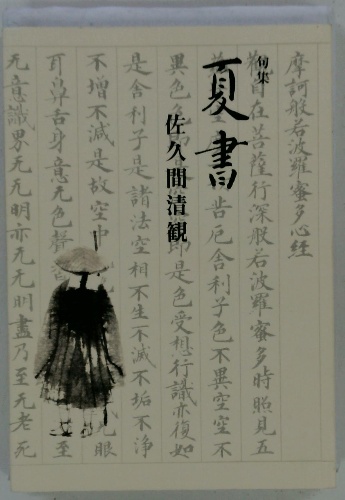 句集
夏書
佐久間清観
摩訶般若波羅蜜多心経
自在菩薩行深般若波羅蜜多時照見五
苦厄舎利子色不異空空不
異色色 即是色受想行識亦復如
是舎利子是諸法空相不生不滅不垢不浄
不増不減是故空中 眼
耳鼻舌身意无色聲香 至
无意識界无无明亦无无明盡乃至无老死